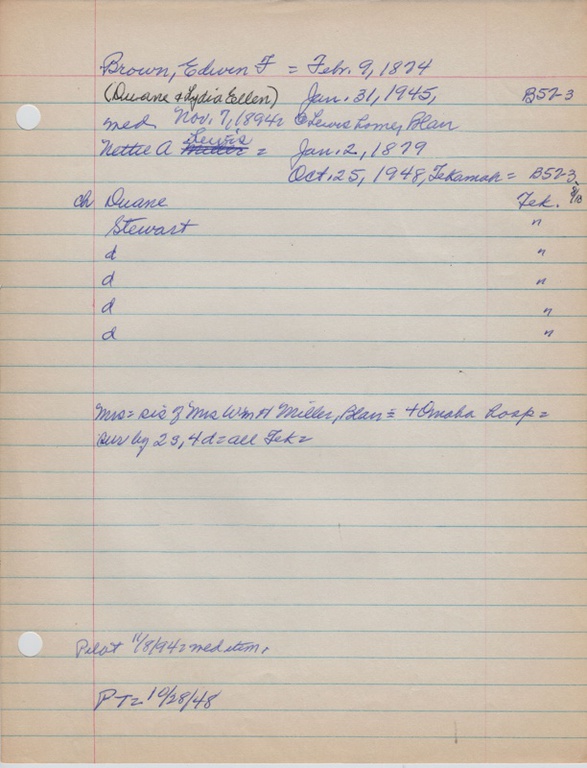 Brown, Edwin F = Febr. 9, 1874
(Duane & Lydia Ellen) Jan. 31, 1945, B52-3
med Nov. 7, 1894 = @ Lewis home, Blair
Nettie A Lewis = Jan. 2, 1879
Oct. 25, 1948, Tekamah = B52-3
ch Duane Tek.
Stewart "
d "
d "
d "
d "
Mrs = sis of Mrs Wm H Miller, Blair = + Omaha hosp =
sur by 2s, 4d = all Tek =
Pilot 11/8/94 = med item.
PT = 10/28/48